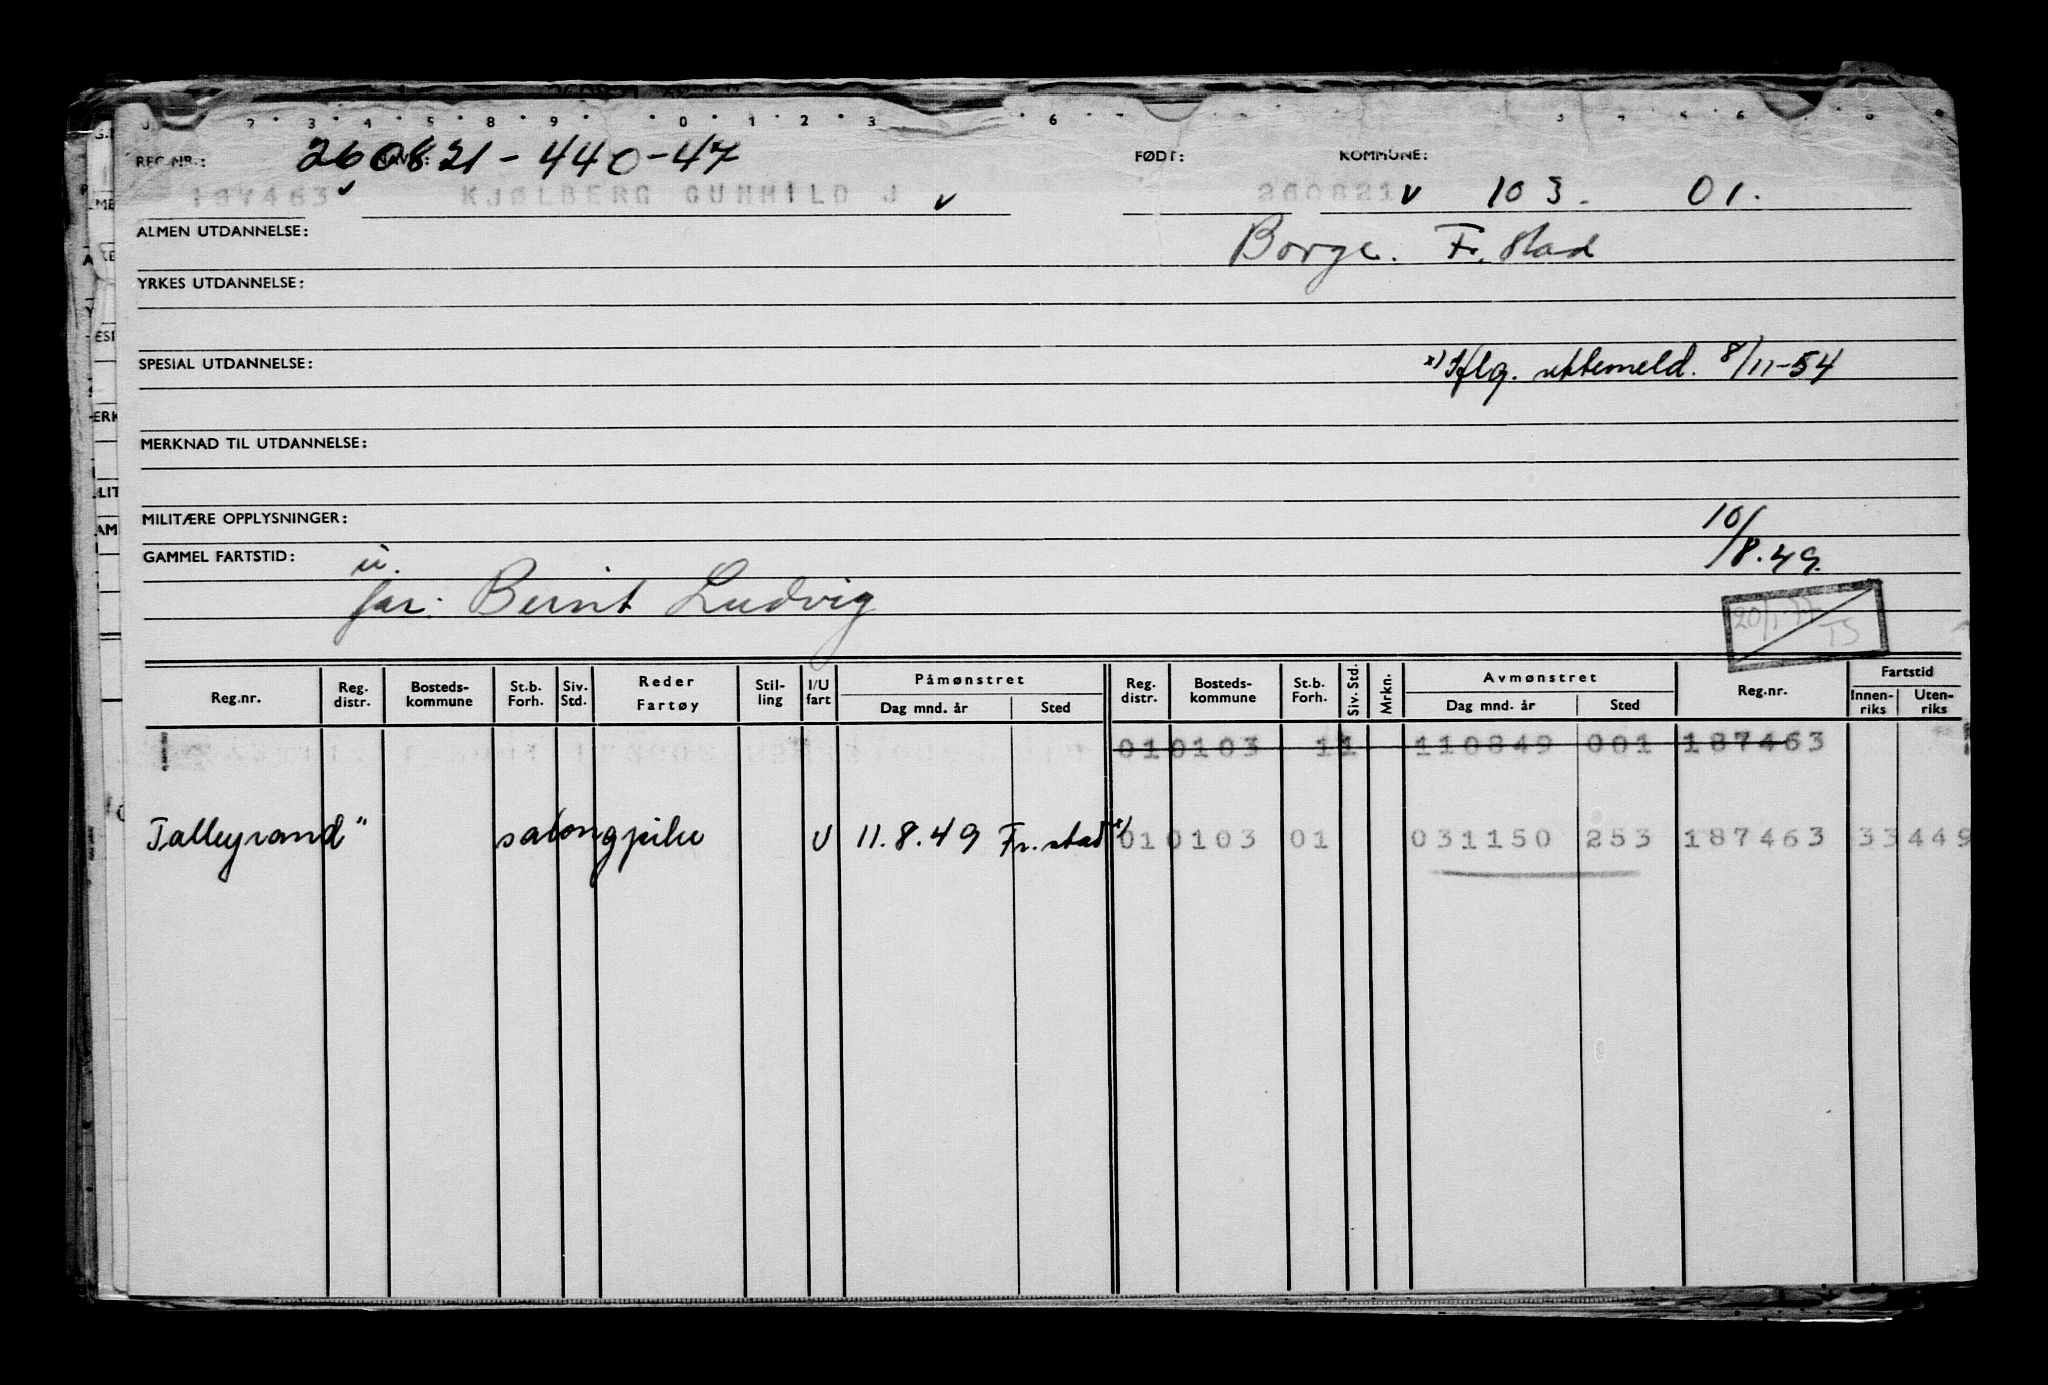 260821-440-47
REG.NR.: NAVN: FØDT: KOMMUNE:
187463 KJØLBERG GUNHILD J 260821 103. 01.
ALMEN UTDANNELSE: Borge. Fr.stad
YRKES UTDANNELSE:
SPESIAL UTDANNELSE: x) Iflg. rettemeld. 8/11-54
MERKNAD TIL UTDANNELSE:
MILITÆRE OPPLYSNINGER: 10/8.49.
GAMMEL FARTSTID: u.
far: Bernt Ludvig
20/1
TS
Reg.nr. Reg. distr. Bosteds- kommune St.b. Forh. Siv. Std. Reder Fartøy Stil- ling I/U fart Påmønstret Dag mnd. år Sted Reg. distr. Bosteds- kommune St.b. Forh. Siv. Std. Mrkn. Avmønstret Dag mnd. år Sted Reg.nr. Fartstid Innen- riks Uten- riks
01 0103 11 110849 001 187463
Talleyrand" salongpike U 11.8.49 Fr.stad x) 01 0103 01 031150 253 187463 33 449